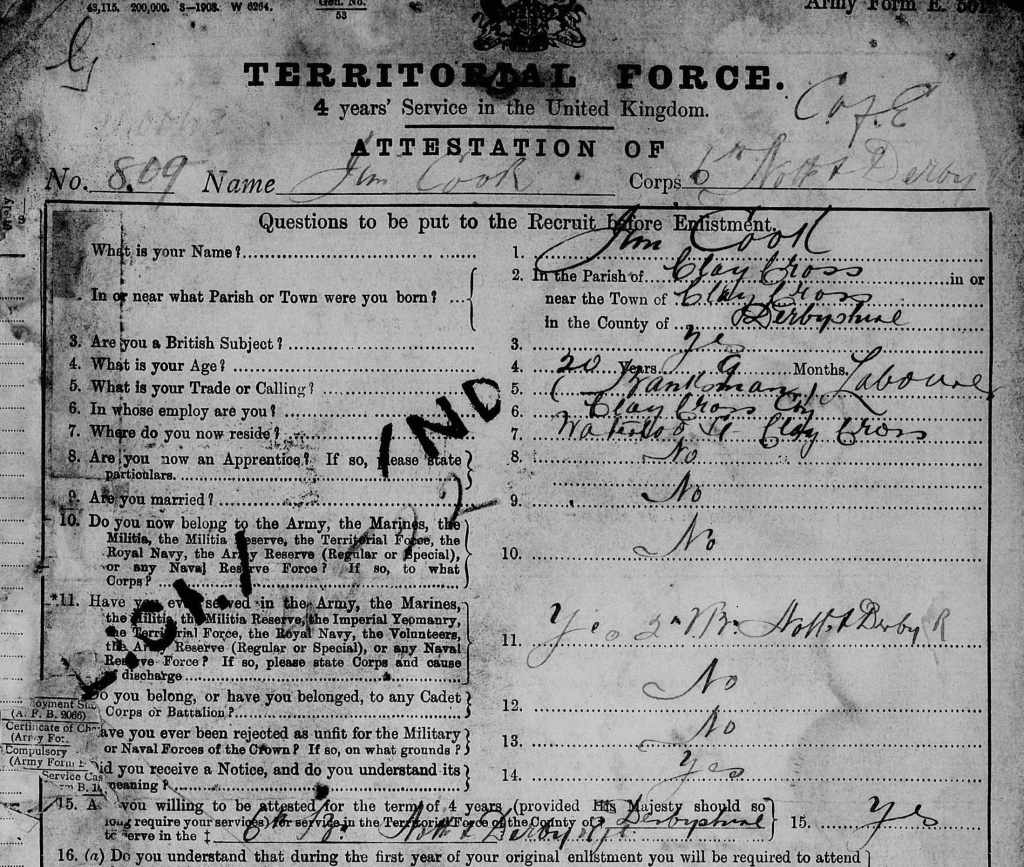 48,115. 200,000. 3—1908. W 6264. Gen. No. 53 Army Form E.
TERRITORIAL FORCE.
4 years' Service in the United Kingdom.
C of E
ATTESTATION OF
No. 809 Name Jim Cook Corps 6th Notts & Derby
Questions to be put to the Recruit before Enlistment.
What is your Name? 1. Jim Cook
In or near what Parish or Town were you born? 2. In the Parish of Clay Cross in or
near the Town of Clay Cross
in the County of Derbyshire
3. Are you a British Subject? 3. Yes
4. What is your Age? 4. 20 Years 9 Months.
5. What is your Trade or Calling? 5. (Banksman) Labourer
6. In whose employ are you? 6. Clay Cross Coy
7. Where do you now reside? 7. Waterloo St Clay Cross
8. Are you now an Apprentice? If so, please state 8. No
particulars.
9. Are you married? 9. No
10. Do you now belong to the Army, the Marines, the
Militia, the Militia Reserve, the Territorial Force, the
Royal Navy, the Army Reserve (Regular or Special),
or any Naval Reserve Force? If so, to what
Corps? 10. No
*11. Have you ever served in the Army, the Marines,
the Militia, the Militia Reserve, the Imperial Yeomanry,
the Territorial Force, the Royal Navy, the Volunteers,
the Army Reserve (Regular or Special), or any Naval
Reserve Force? If so, please state Corps and cause
of discharge 11. Yes 2n VBn Notts & Derby R
Do you belong, or have you belonged, to any Cadet
Corps or Battalion? 12. No
Have you ever been rejected as unfit for the Military
or Naval Forces of the Crown? If so, on what grounds? 13. No
Did you receive a Notice, and do you understand its
meaning? 14. Yes
15. Are you willing to be attested for the term of 4 years (provided His Majesty should so
long require your services) for service in the Territorial Force of the County of Derbyshire 15. Yes
to serve in the ‡ 6th Bn Notts & Derby Rgt
16. (a) Do you understand that during the first year of your original enlistment you will be required to attend
IND
oyment She
(A. F. B. 2066)
Certificate of Cha
(Army Fo
Compulsory
(Army Form
Service Cas
m B.